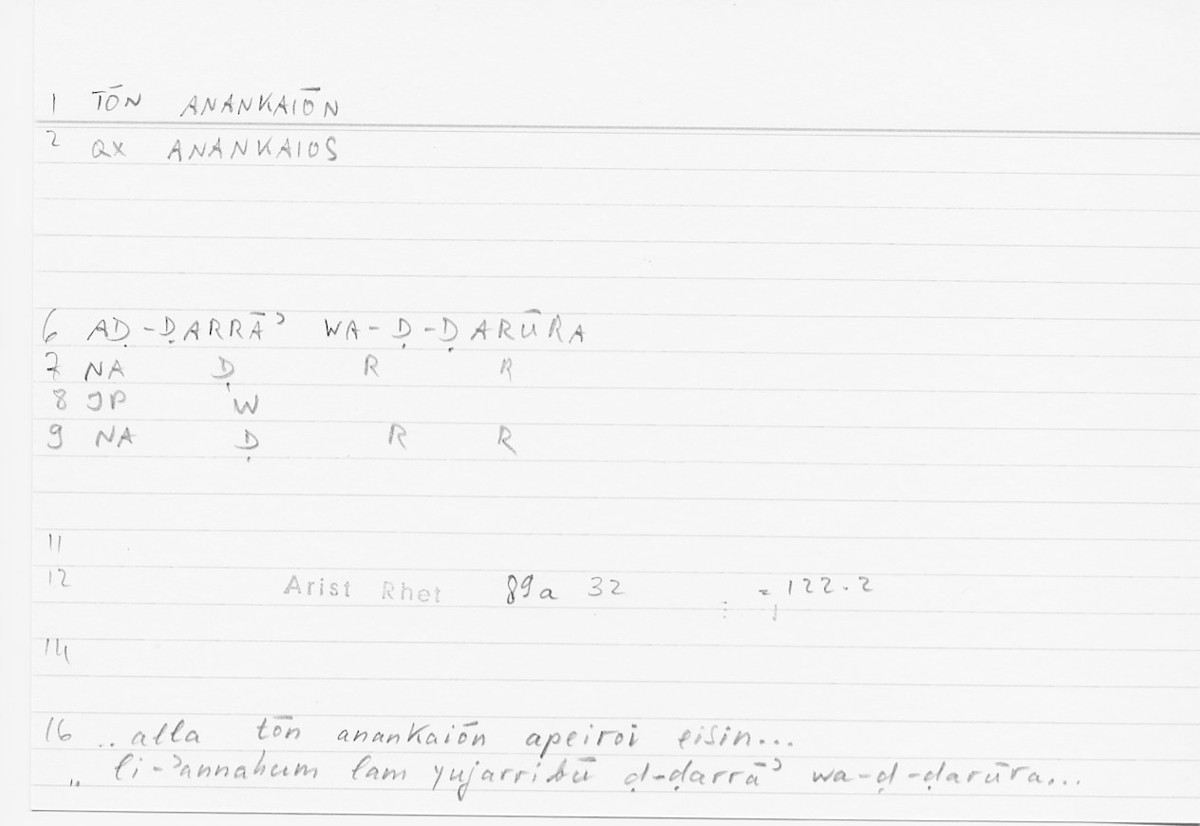 1 TŌN ANANKAIŌN
2 QX ANANKAIOS
6 AḌ-ḌARRĀʾ WA-Ḍ-ḌARŪRA
7 NA Ḍ R R
8 JP W
9 NA Ḍ R R
11
12 Arist Rhet 89a 32 = 122.2
14
16 .. alla tōn anankaiōn apeiroi eisin...
,, li-ʾannahum lam yujarribū ḍ-ḍarrāʾ wa-ḍ-ḍarūra...